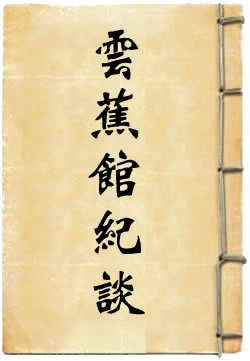 雲蕉館紀談